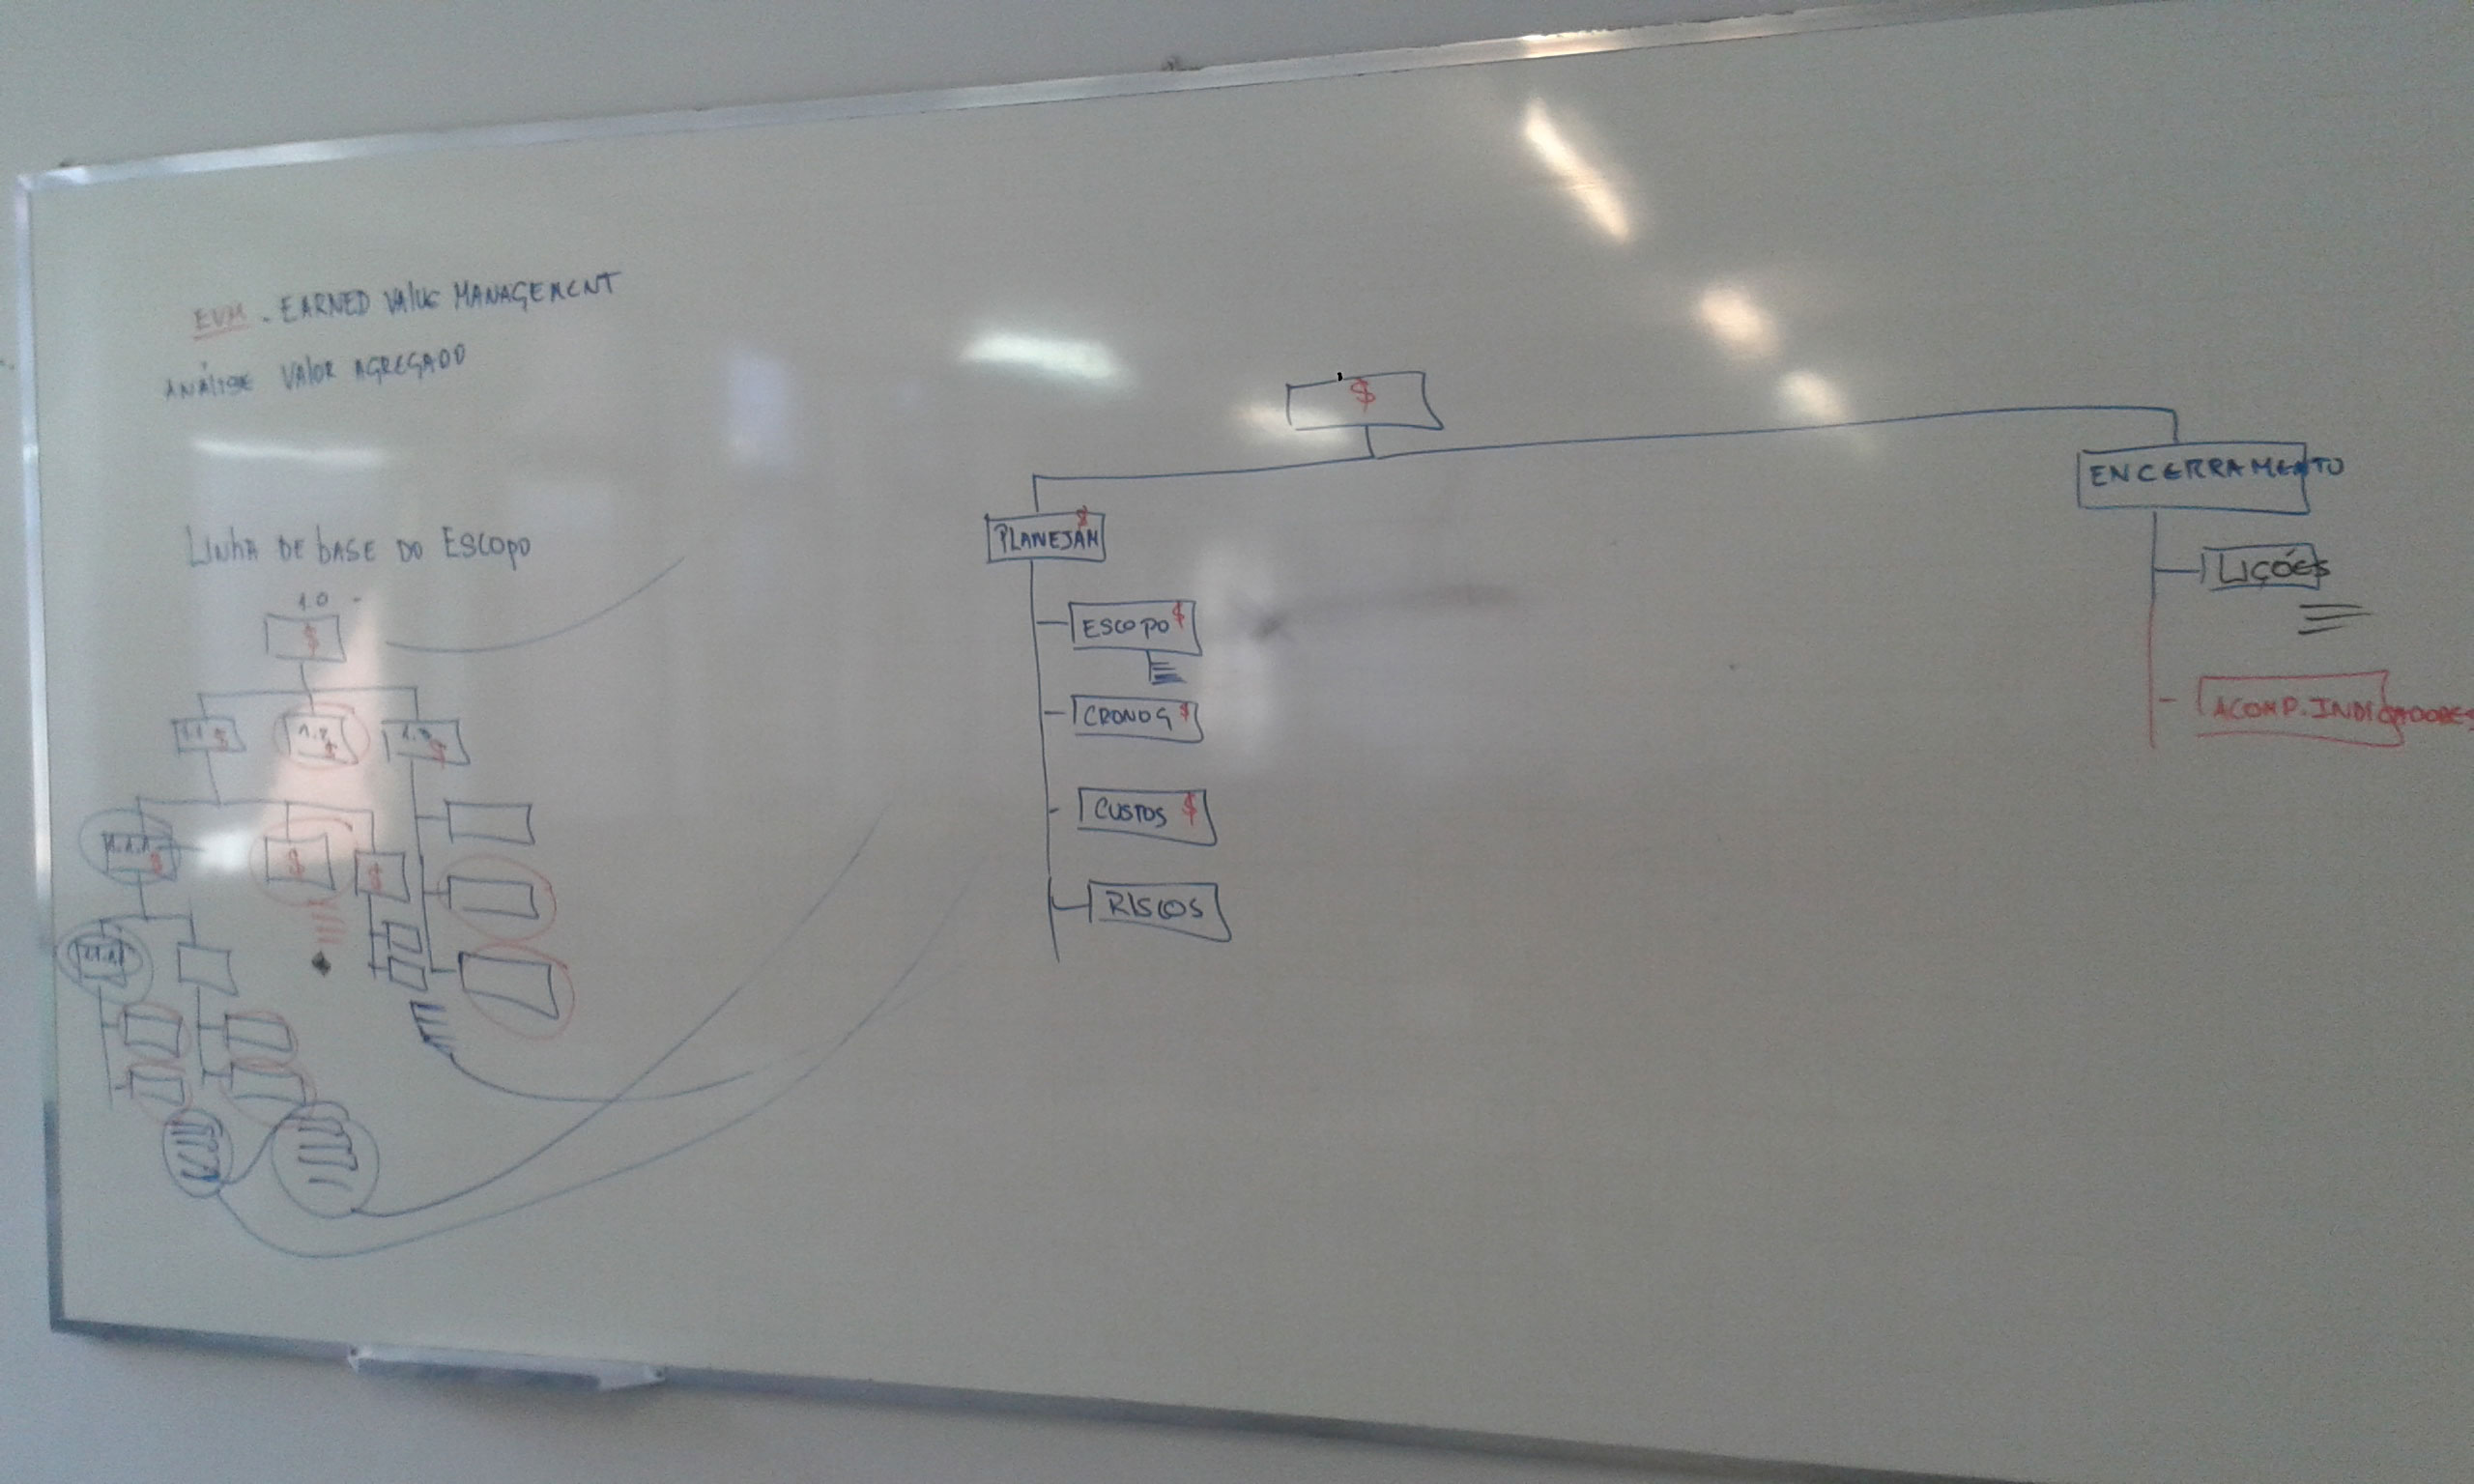 EVM - EARNED VALUE MANAGEMENT
ANÁLISE VALOR AGREGADO
LINHA DE BASE DO ESCOPO
1.0 -
$
1.1 $
1.2 $
1.3 $
1.1.1 $
$
$
$
PLANEJAM $
ESCOPO $
CRONOG $
CUSTOS $
RISCOS
ENCERRAMENTO
LIÇÕES
ACOMP. INDICADORES